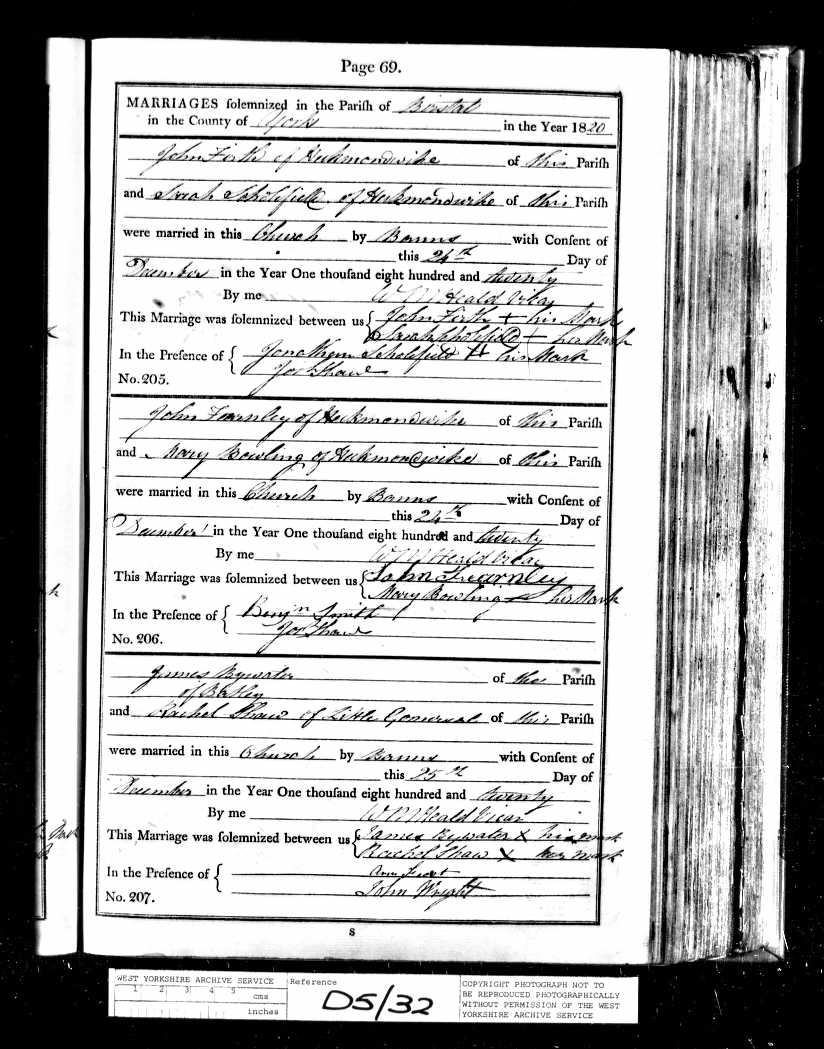 Page 69.
MARRIAGES solemnized in the Parish of Birstal
in the County of York in the Year 1820
John Firth of Heckmondwike of this Parish
and Sarah Scholefield of Heckmondwike of this Parish
were married in this Church by Banns with Consent of
this 24th Day of
December in the Year One thousand eight hundred and twenty
By me W M Heald Vicar
This Marriage was solemnized between us { John Firth + his Mark
Sarah Scholefield + her Mark
In the Presence of { Jonathan Scholefield + his Mark
Jos Shaw
No. 205.
John Fearnley of Heckmondwike of this Parish
and Mary Bowling of Heckmondwike of this Parish
were married in this Church by Banns with Consent of
this 24th Day of
December in the Year One thousand eight hundred and twenty
By me W M Heald Vicar
This Marriage was solemnized between us { John Fearnley
Mary Bowling her Mark
In the Presence of { Benjn Smith
Jos Shaw
No. 206.
James Bywater of the Parish
of Batley
and Rachel Shaw of Little Gomersal of this Parish
were married in this Church by Banns with Consent of
this 25th Day of
December in the Year One thousand eight hundred and twenty
By me W M Heald Vicar
This Marriage was solemnized between us { James Bywater X his mark
Rachel Shaw X her mark
In the Presence of {
John Wright
No. 207.
s
WEST YORKSHIRE ARCHIVE SERVICE
1 2 3 4 5
cms
inches
Reference
D5/32
COPYRIGHT PHOTOGRAPH NOT TO
BE REPRODUCED PHOTOGRAPHICALLY
WITHOUT PERMISSION OF THE WEST
YORKSHIRE ARCHIVE SERVICE